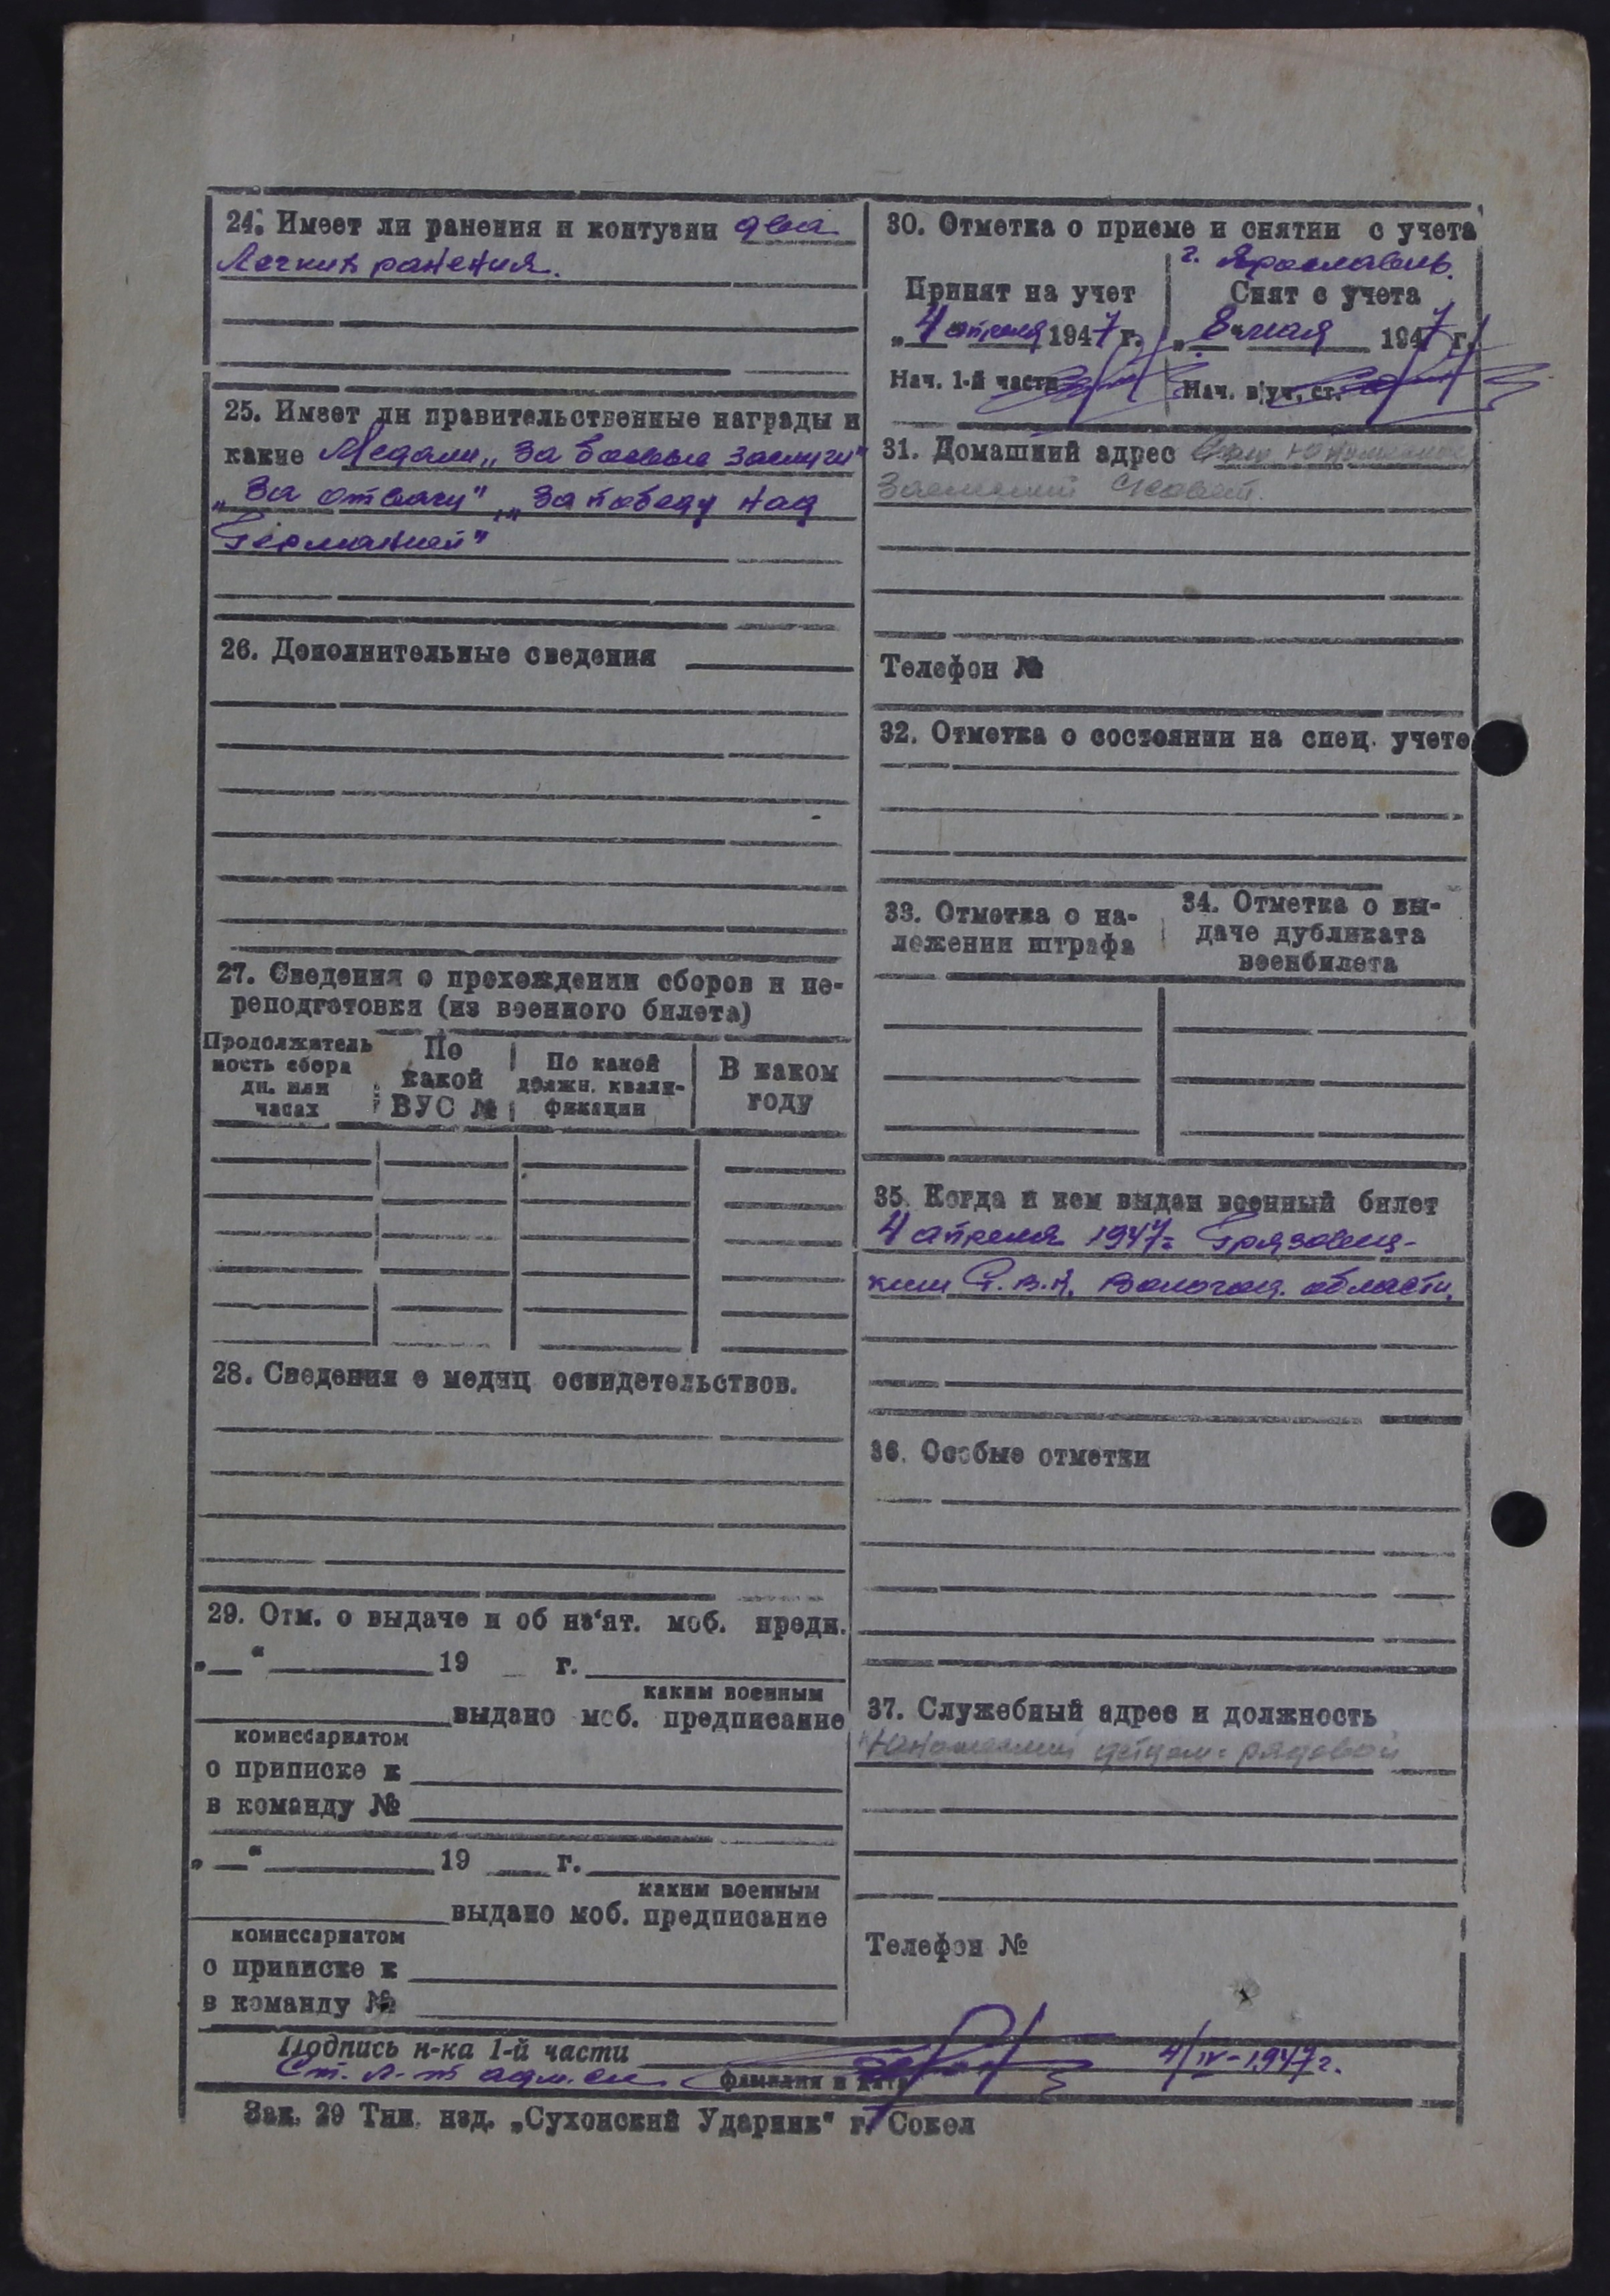 24. Имеет ли ранения и контузии два
Легких ранения.
25. Имеет ли правительственные награды и
какие Медали „За боевые заслуги"
„За отвагу" „За победу над
Германией"
26. Дополнительные сведения
27. Сведения о прохождении сборов и пе-
реподготовки (из военного билета)
Продолжатель
ность сбора
дн. или
часах
По
какой
ВУС №
По какой
должн. квали-
фикации
В каком
году
28. Сведения о медиц освидетельствов.
29. Отм. о выдаче и об из‘ят. моб. предп.
„ “ 19 г.
каким военным
выдано моб. предписание
комиссариатом
о приписке к
в команду №
„ “ 19 г.
каким военным
выдано моб. предписание
комиссариатом
о приписке к
в команду №
30. Отметка о приеме и снятии с учета
г. Ярославль.
Принят на учет
„4“ апреля 1947 г.
Нач. 1-й части
Снят с учета
„8“ мая 1947 г.
Нач. в/уч. ст.
31. Домашний адрес
Телефон №
32. Отметка о состоянии на спец. учете
33. Отметка о на-
ложении штрафа
34. Отметка о вы-
даче дубликата
военбилета
35. Когда и кем выдан военный билет
4 апреля 1947г. Грязовец-
ким Р.В.К. Вологод. области.
36. Особые отметки
37. Служебный адрес и должность
детдом - рядовой
Телефон №
Подпись н-ка 1-й части
Ст. л-т адм. сл. 4/IV-1947г.
фамилия и дата
Зак. 29 Тип. изд. „Сухонский Ударник“ г. Сокол